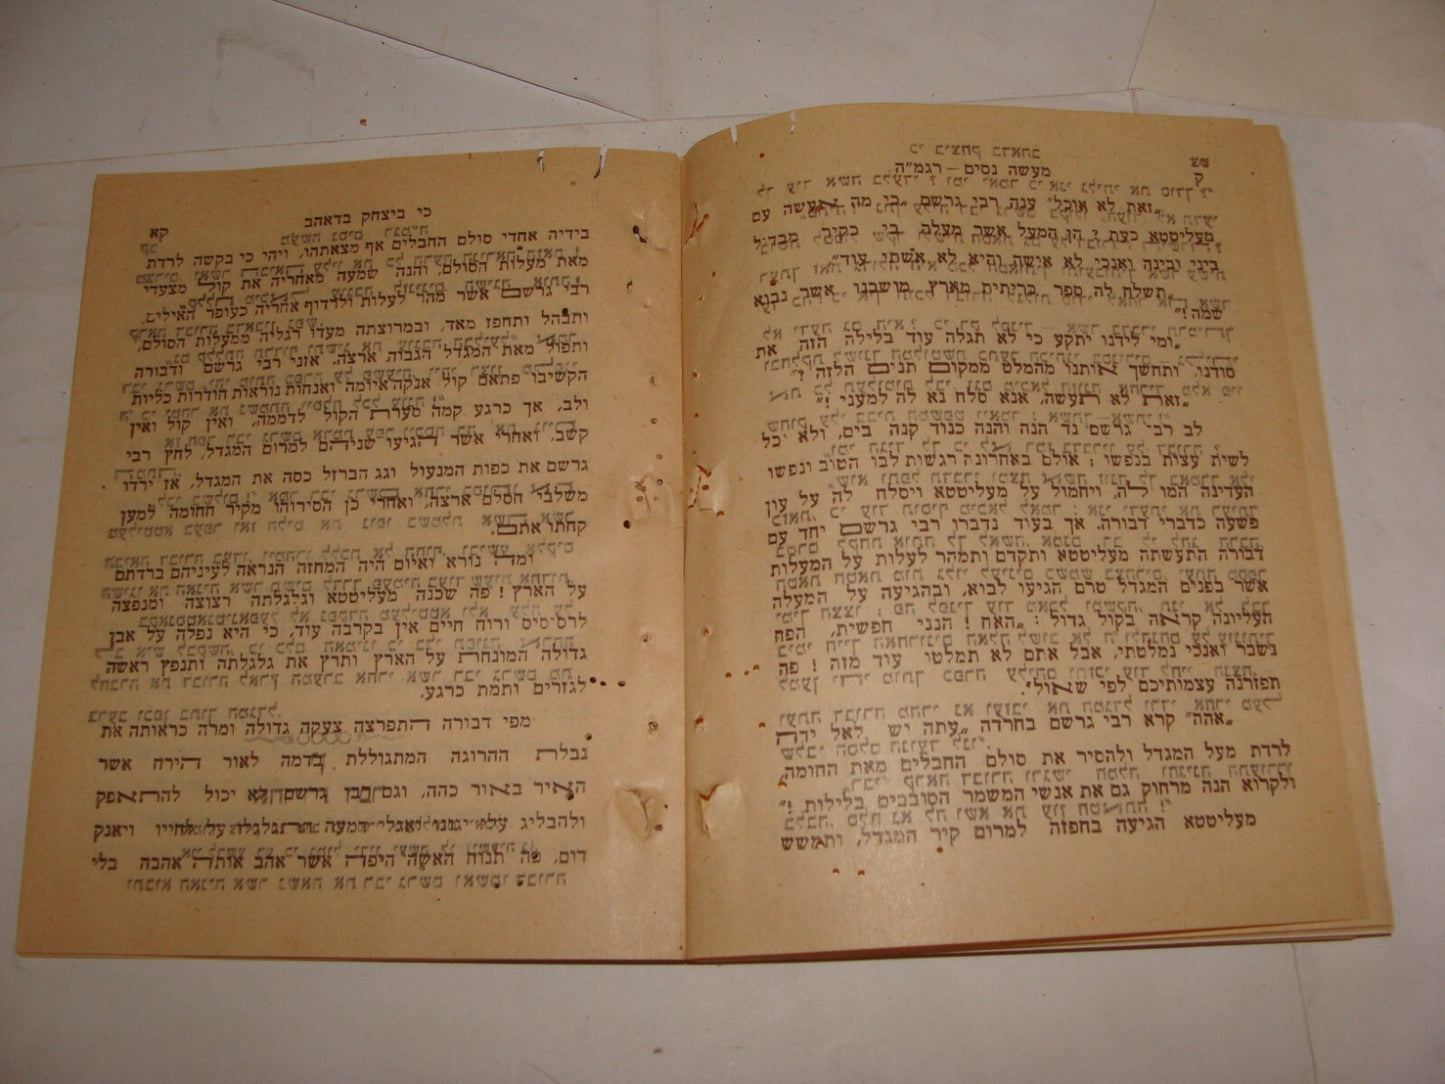 מעשה נסים — רגמ"ה
ק
„זאת לא אוכל" ענה רבי גרשם „כי מה אעשה עם
מעליטטא כעת ? הן המעל אשר מעלה בי כקיר מבדיל
ביני ובינה ואנכי לא אישה והיא לא אשתי עוד".
„תשלח לה ספר כריתית מארץ מושבנו אשר נבוא
שמה !"
„ומי לידנו יתקע כי לא תגלה עוד בלילה הזה את
סודנו, ותחשך אותנו מהמלט ממקום תנים הלזה ?"
„זאת לא תעשה, אנא סלח נא לה למעני !"
לב רבי גרשם נד הנה והנה כנוד קנה בים, ולא יכל
לשית עצות בנפשו ; אולם באחרונה רגשות לבו הטוב ונפשו
העדינה המו לה, ויחמול על מעליטטא ויסלח לה על עון
פשעה כדברי דבורה. אך בעוד נדברו רבי גרשם יחד עם
דבורה התעשתה מעליטטא ותקדם ותמהר לעלות על המעלות
אשר בפנים המגדל טרם הגיעו לבוא, ובהגיעה על המעלה
העליונה קראה בקול גדול : „האח ! הנני חפשית, הפח
נשבר ואנכי נמלטתי, אבל אתם לא תמלטו עוד מזה ! פה
תפזרנה עצמותיכם לפי שאול".
„אהה" קרא רבי גרשם בחרדה „עתה יש לאל ידה
לרדת מעל המגדל ולהסיר את סולם החבלים מאת החומה,
ולקרוא הנה מרחוק גם את אנשי המשמר הסובבים בלילות !"
מעליטטא הגיעה בחפזה למרום קיר המגדל, ותמשש
כי ביצחק בדאהב
קא
בידיה אחדי סולם החבלים אף מצאתהו, ויהי כי בקשה לרדת
מאת מעלות הסולם, והנה שמעה מאחריה את קול מצעדי
רבי גרשם אשר מהר לעלות ולרדוף אחריה כעופר האילים.
ותבהל ותחפז מאד, ובמרוצתה מעדו רגליה ממעלות הסולם,
ותפול מאת המגדל הגבוה ארצה. אזני רבי גרשם ודבורה
הקשיבו פתאם קול אנקה איומה ואנחות נוראות חודרות כליות
ולב, אך כרגע קמה סערת הקול לדממה, ואין קול ואין
קשב. ואחרי אשר הגיעו שניהם למרום המגדל, לחץ רבי
גרשם את כפות המנעול וגג הברזל כסה את המגדל, אז ירדו
משלבי הסלם ארצה, ואחרי כן הסירוהו מקיר החומה למען
קחתו אתם.
ומה נורא ואיום היה המחזה הנראה לעיניהם ברדתם
על הארץ ! פה שכנה מעליטטא וגלגלתה רצוצה ומנפצה
לרסיסים ורוח חיים אין בקרבה עוד, כי היא נפלה על אבן
גדולה המונחת על הארץ ותרץ את גלגלתה ותנפץ ראשה
לגזרים ותמת כרגע.
מפי דבורה התפרצה צעקה גדולה ומרה כראותה את
נבלת ההרוגה המתגוללת בדמה לאור הירח אשר
האיר באור כהה, וגם רבן גרשם לא יכול להתאפק
ולהבליג עלי יגונו ואגלי דמעה התגלגלו על לחייו ויאנק
דום, מה תנוח האשה היפה אשר אהב אותה אהבה בלי